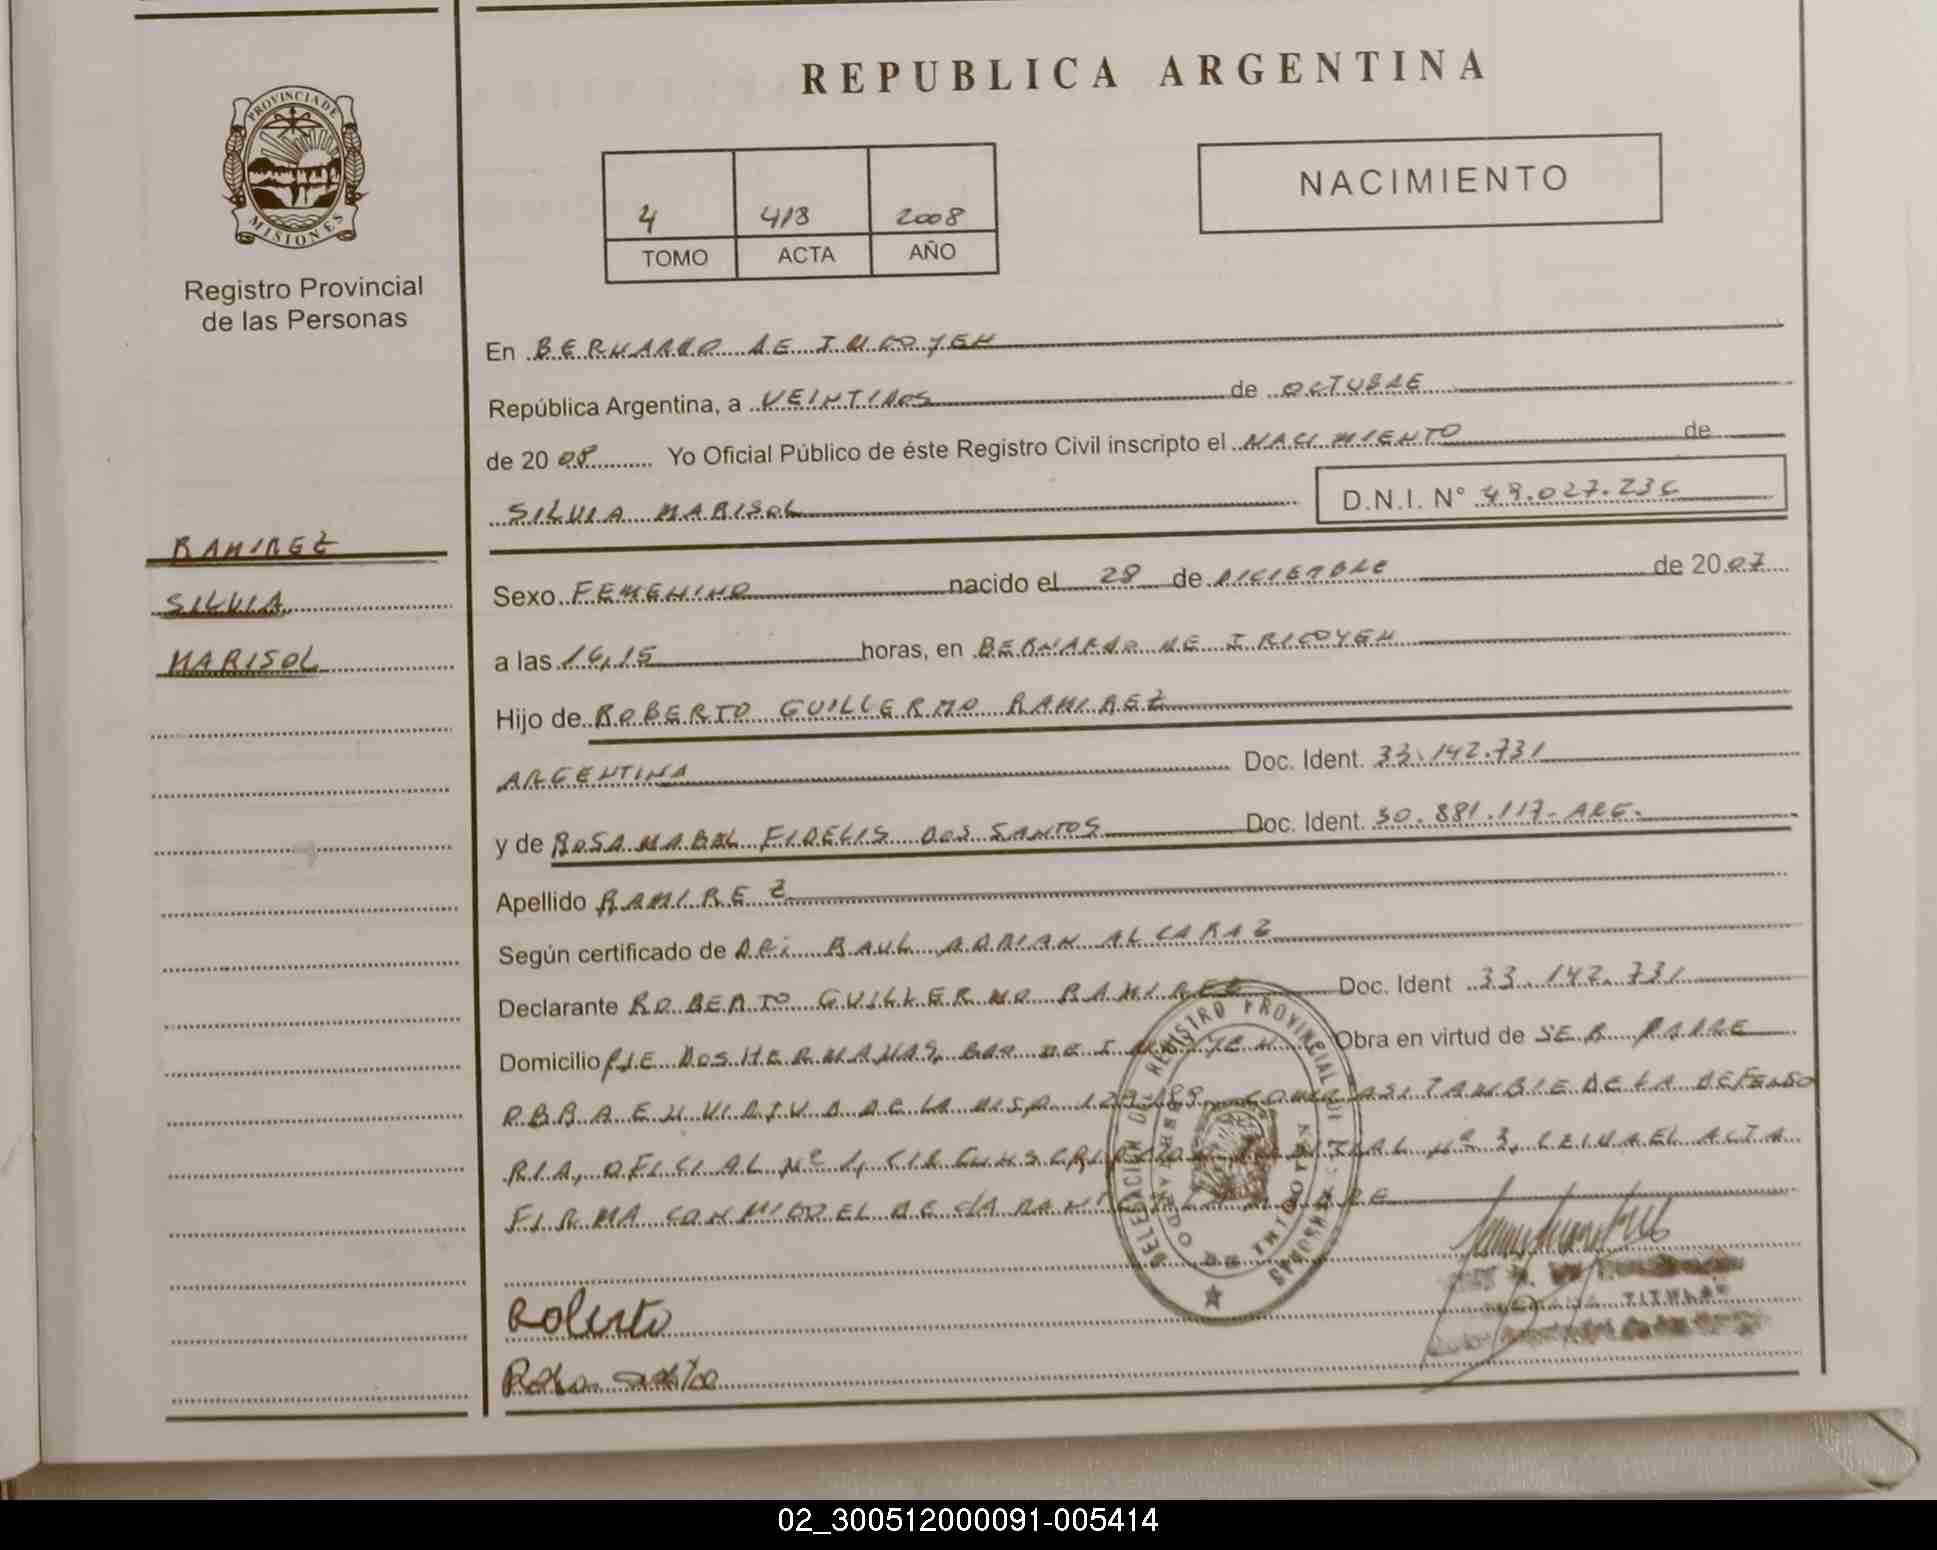 REPUBLICA ARGENTINA
PROVINCIA DE
MISIONES
Registro Provincial
de las Personas
NACIMIENTO
4 418 2008
TOMO ACTA AÑO
En BERNARDO DE IRIGOYEN
República Argentina, a VEINTIDOS de OCTUBRE
de 20 08 Yo Oficial Público de éste Registro Civil inscripto el NACIMIENTO de
SILVIA MARISOL D.N.I. N° 49.027.236
RAMIREZ
SILVIA
MARISOL
Sexo FEMENINO nacido el 28 de DICIEMBRE de 2007
a las 16,15 horas, en BERNARDO DE IRIGOYEN
Hijo de ROBERTO GUILLERMO RAMIREZ
ARGENTINA Doc. Ident. 33.142.731
y de ROSA MABEL FIDELIS DOS SANTOS Doc. Ident. 30.881.117- ARG.
Apellido RAMIREZ
Según certificado de RAUL ADRIAN ALCARAZ
Declarante ROBERTO GUILLERMO RAMIREZ Doc. Ident 33.142.731
Domicilio PJE DOS HERMANAS, BDO DE Obra en virtud de SER PADRE
EN VIRTUD DE LA COMO ASI TAMBIE DE LA DEFENSO
RIA, OFICIAL Nº 1, Nº 3, LEIDA EL ACTA
FIRMA CONMIGO EL DECLARANTE
DELEGACION DEL REGISTRO PROVINCIAL DE LAS PERSONAS
Roberto
TITULAR
02_300512000091-005414